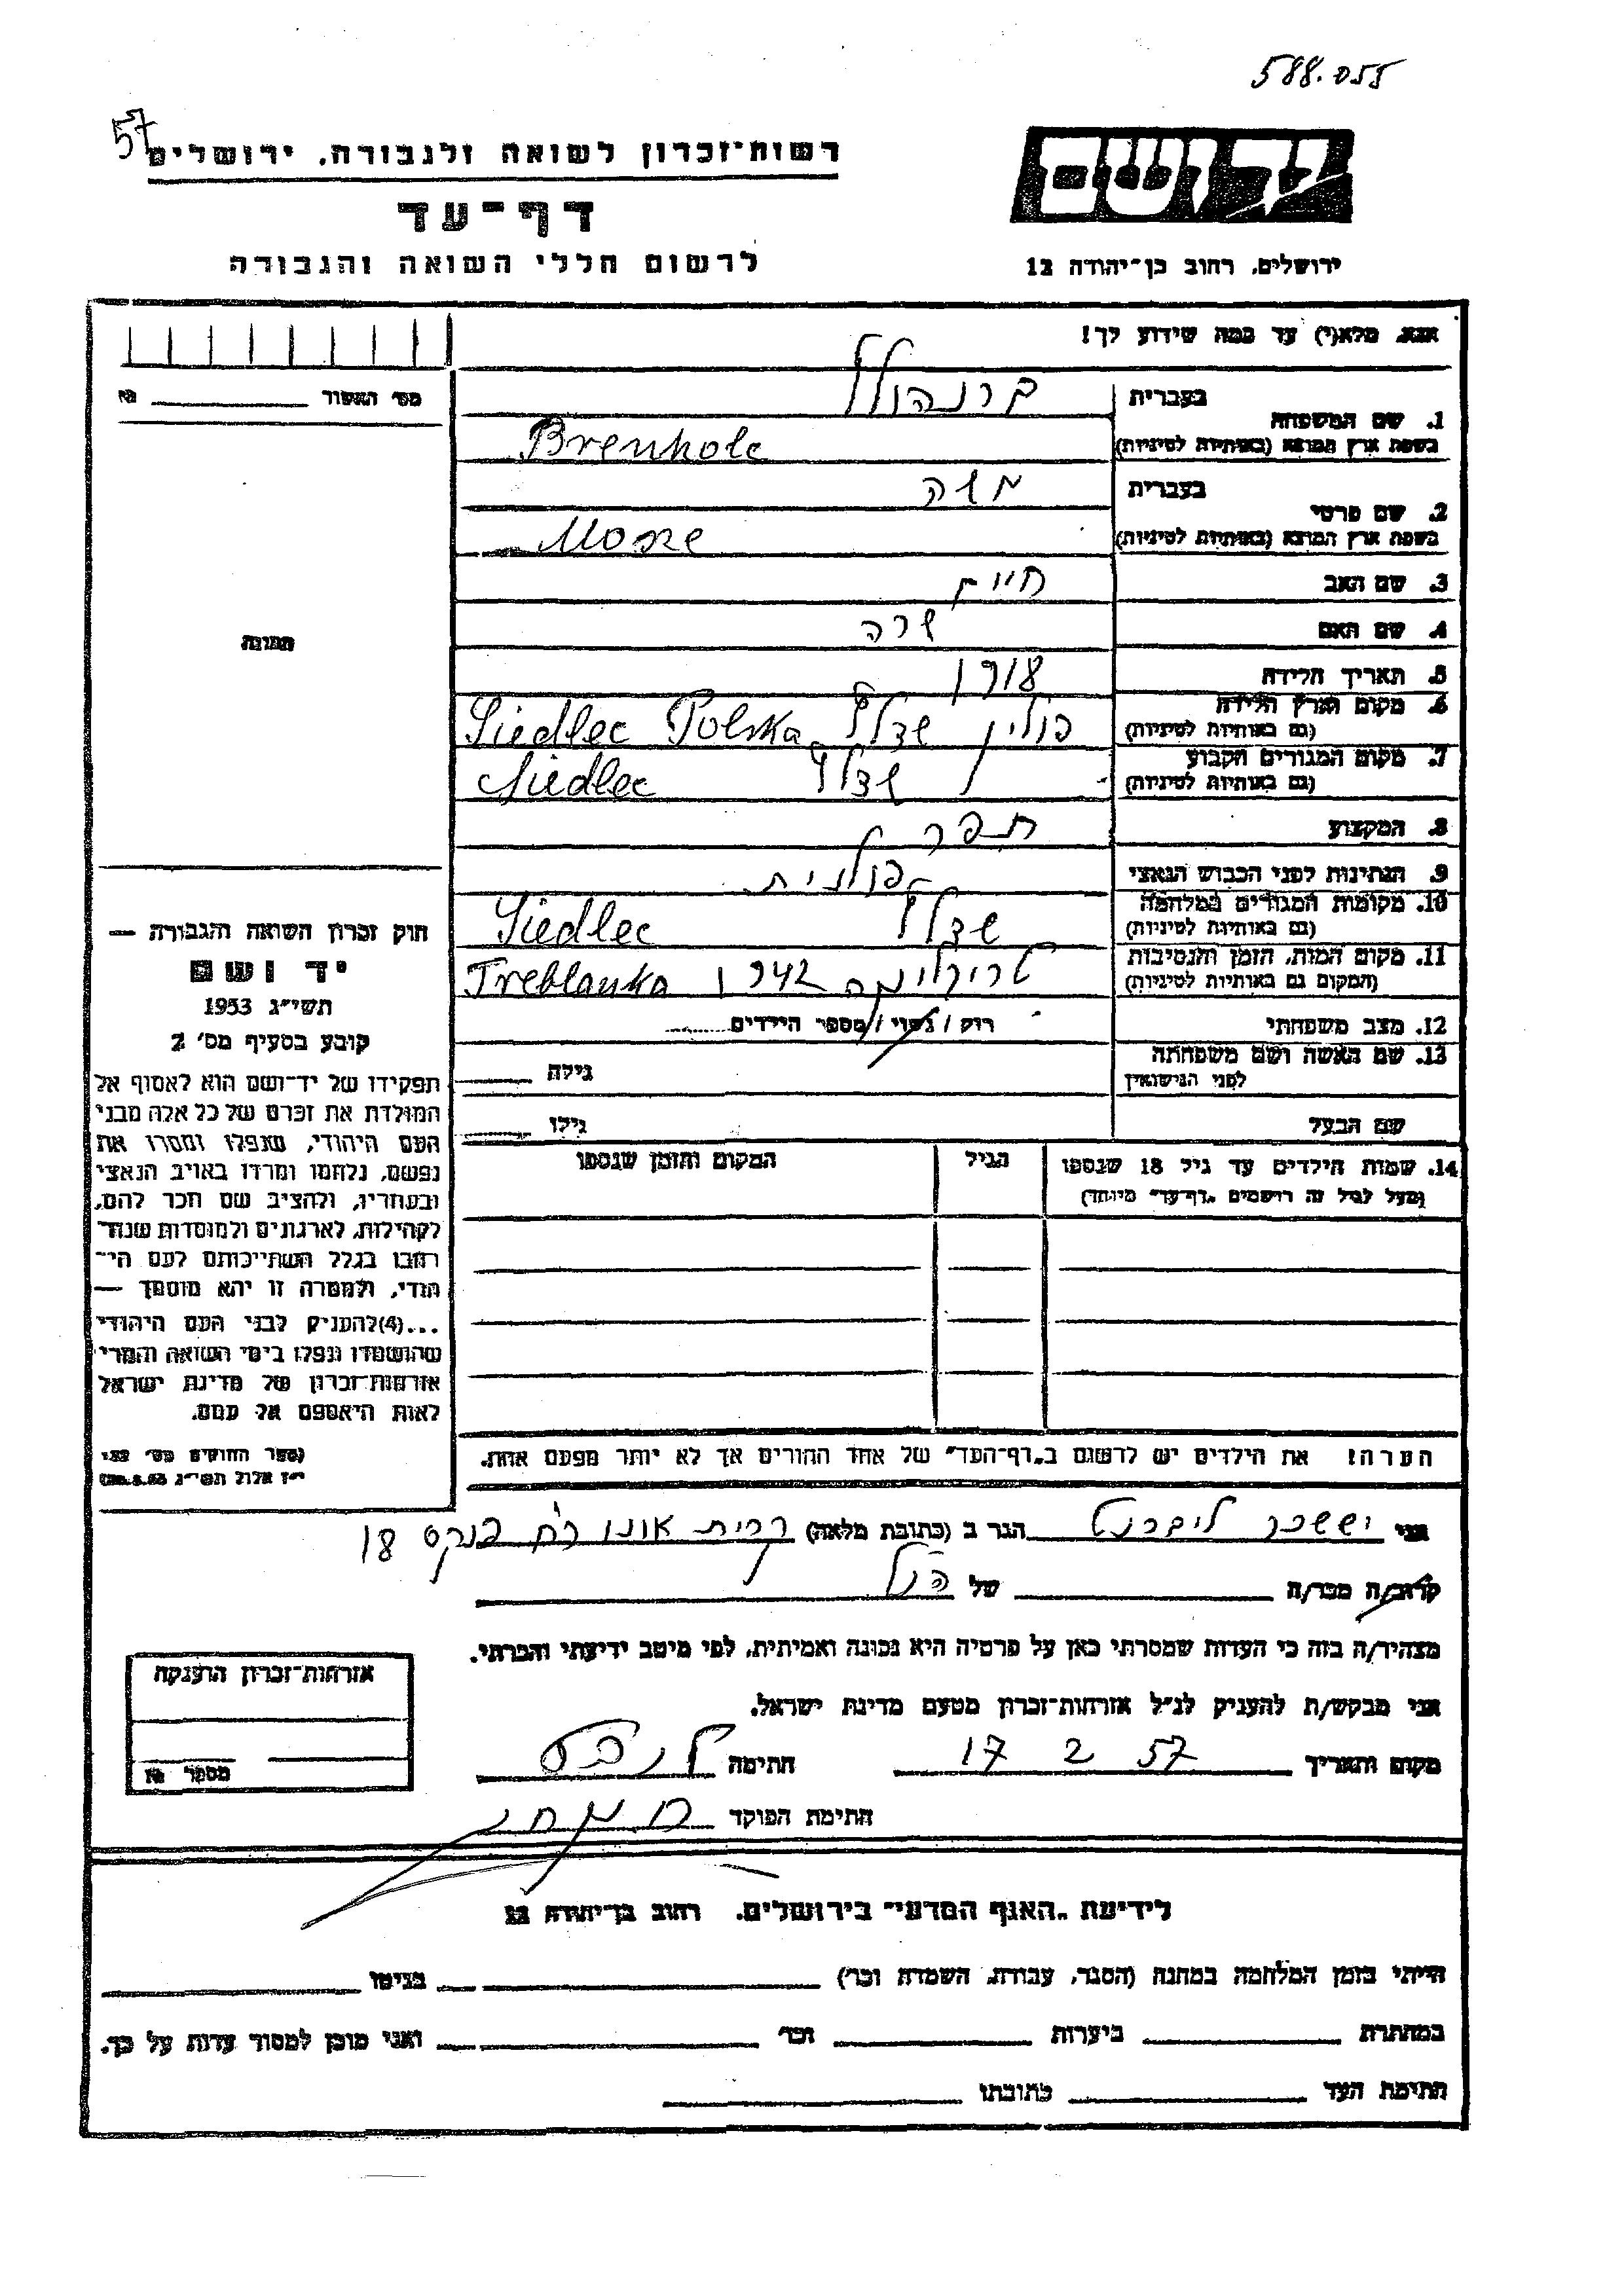 588.055
57
רשות־זכרון לשואה ולגבורה, ירושלים
יד ושם
דף־עד
לרשום חללי השואה והגבורה
ירושלים, רחוב בן־יהודה 12
אנא, מלא(י) עד כמה שידוע לך!
מס׳ האשור
בעברית
ברנהולץ
1. שם המשפחה
בשפת ארץ המוצא (באותיות לטיניות)
Brenholc
בעברית
משה
2. שם פרטי
בשפת ארץ המוצא (באותיות לטיניות)
Mosze
3. שם האב
חיים
4. שם האם
שרה
5. תאריך הלידה
1918
6. מקום וארץ הלידה
(גם באותיות לטיניות)
פולין שדלץ Siedlec Polska
7. מקום המגורים הקבוע
(גם באותיות לטיניות)
שדלץ Siedlec
8. המקצוע
ספר
9. הנתינות לפני הכבוש הנאצי
פולנית
10. מקומות המגורים במלחמה
(גם באותיות לטיניות)
שדלץ Siedlec
11. מקום המות, הזמן והנסיבות
(המקום גם באותיות לטיניות)
1942 Treblanka
12. מצב משפחתי
רוק / נשוי / מספר הילדים
13. שם האשה ושם משפחתה
לפני הנישואין
גילה
שם הבעל
גילו
14. שמות הילדים עד גיל 18 שנספו
(מעל לגיל זה רושמים „דף־עד״ מיוחד)
הגיל
המקום והזמן שנספו
הערה! את הילדים יש לרשום ב„דף־העד״ של אחד ההורים אך לא יותר מפעם אחת.
תמונה
חוק זכרון השואה והגבורה —
יד ושם
תשי״ג 1953
קובע בסעיף מס׳ 2
תפקידו של יד־ושם הוא לאסוף אל
המולדת את זכרם של כל אלה מבני
העם היהודי, שנפלו ומסרו את
נפשם, נלחמו ומרדו באויב הנאצי
ובעוזריו, ולהציב שם וזכר להם,
לקהילות, לארגונים ולמוסדות שנח־
רבו בגלל השתייכותם לעם הי־
הודי, ולמטרה זו יהא מוסמך —
...(4)להעניק לבני העם היהודי
שהושמדו ונפלו בימי השואה והמרי
אזרחות־זכרון של מדינת ישראל
לאות היאספם אל עמם.
(ספר החוקים מס׳ 132
י״ז אלול תשי״ג
אני יששכר הגר ב (כתובת מלאה) קרית אונו פנקס 18
קרוב/ה מכר/ה של הנ״ל
מצהיר/ה בזה כי העדות שמסרתי כאן על פרטיה היא נכונה ואמיתית, לפי מיטב ידיעתי והכרתי.
אני מבקש/ת להעניק לנ״ל אזרחות־זכרון מטעם מדינת ישראל.
מקום ותאריך 17 2 57 חתימה
חתימת הפוקד
אזרחות־זכרון הוענקה
מספר
לידיעת „האגף המדעי״ בירושלים, רחוב בן־יהודה 12
הייתי בזמן המלחמה במחנה (הסגר, עבודה, השמדה וכו׳) בגיטו
במחתרת ביערות וכו׳ ואני מוכן למסור עדות על כך.
חתימת העד כתובתו